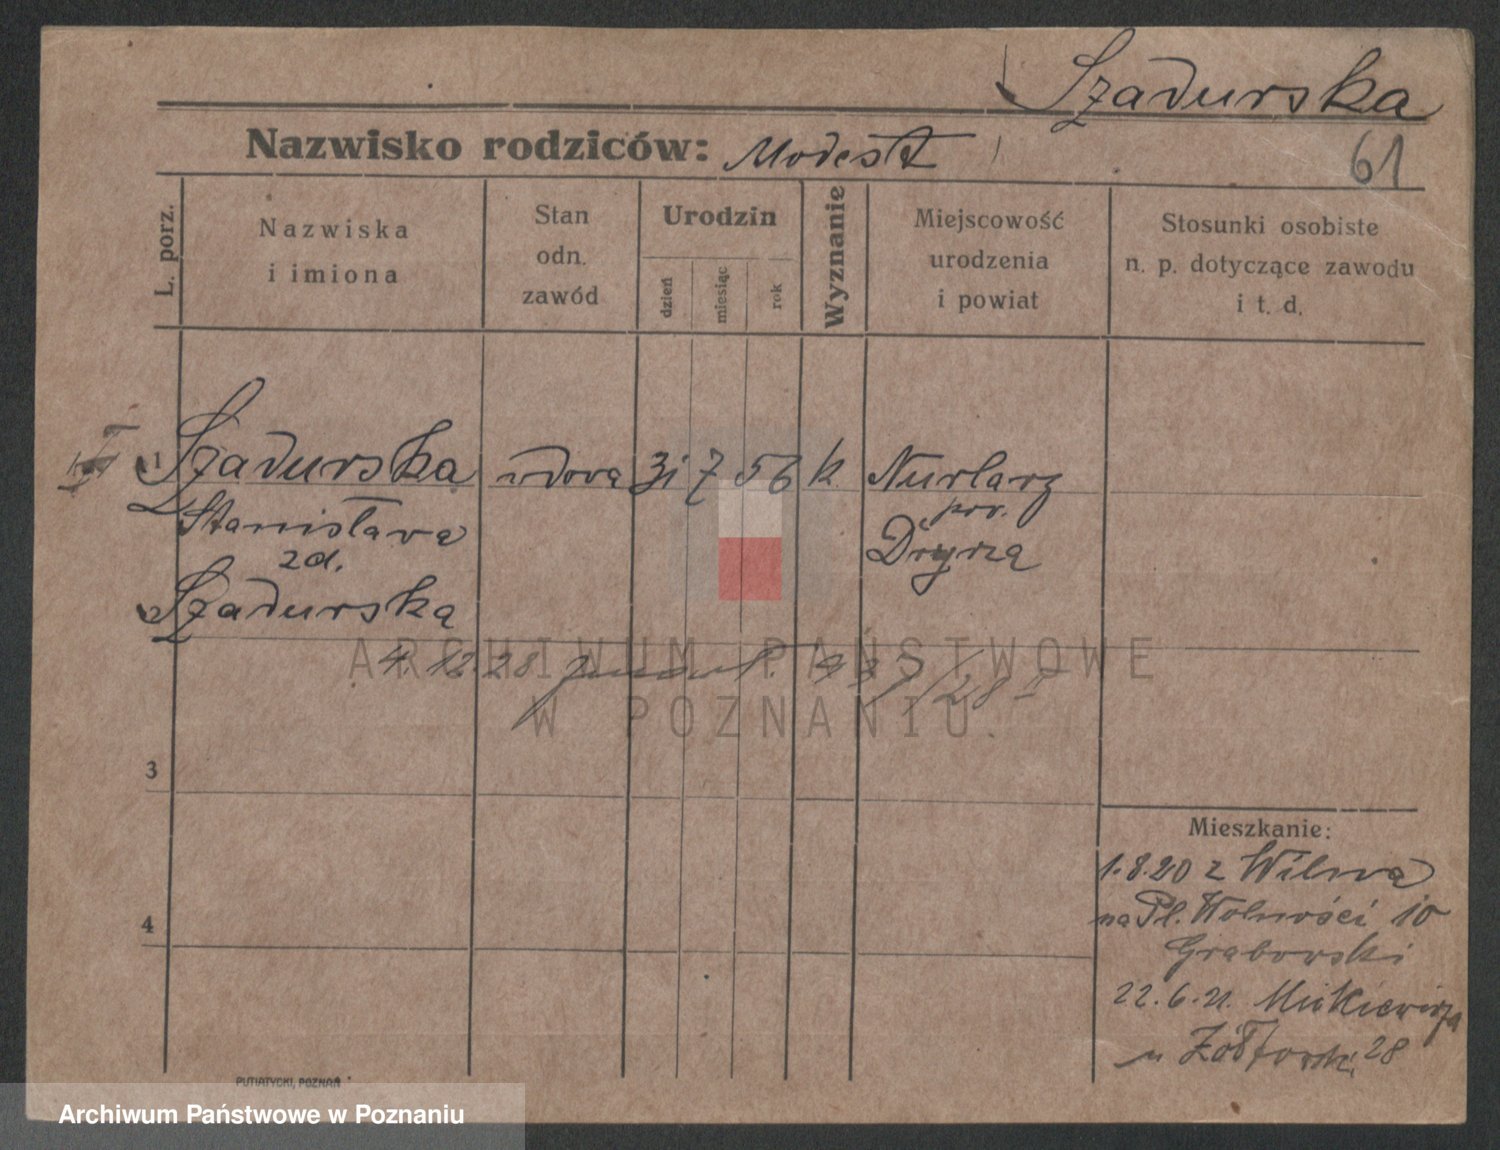 Szadurska
Nazwisko rodziców: Modest
61
L. porz.
Nazwiska
i imiona
Stan
odn.
zawód
Urodzin
dzień
miesiąc
rok
Wyznanie
Miejscowość
urodzenia
i powiat
Stosunki osobiste
n. p. dotyczące zawodu
i t. d.
1 Szadurska wdowa 31 7 56 k.
Stanisława pow.
zd.
2 Szadurska
4.12.28 937/28 I
3
4
Mieszkanie:
1.8.20 z Wilna
na Pl. Wolności 10
Grabowski
22.6.21. Mickiewicza
u 28
PUTIATYCKI, POZNAŃ
ARCHIWUM PAŃSTWOWE
W POZNANIU.
Archiwum Państwowe w Poznaniu